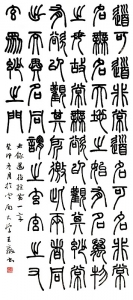 道可道非常道名可名非常
名無名天地之始有名萬物
之母故常無欲以觀其妙常
有欲以觀其徼此兩者同出
而異名同謂之玄玄之又玄
眾妙之門